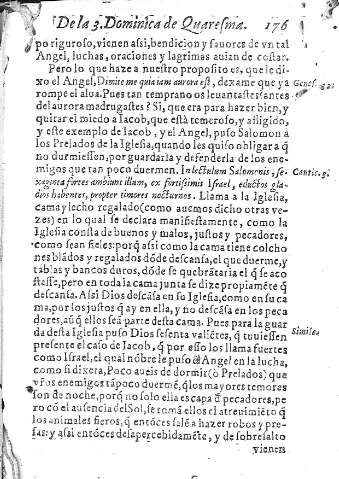 De la 3. Dominica de Quaresma. 176
po riguroso, vienen assi, bendicion y fauores de vn tal
Angel, luchas, oraciones y lagrimas auian de costar.
Pero lo que haze a nuestro proposito es, que le di-
xo el Angel, Dimite me quia iam aurora est, dexame que ya Genes. 32.
rompe el alua. Pues tan temprano os leuantastes: antes
del aurora madrugastes? Si, que era para hazer bien, y
quitar el miedo a Iacob, que està temeroso, y afligido,
y este exemplo de Iacob, y el Angel, puso Salomon a
los Prelados de la Iglesia, quando les quiso obligar a q̃
no durmiessen, por guardarla y defenderla de los ene-
migos que tan poco duermen. In lectulum Salomonis, se- Cantic. 3.
xaginta fortes ambiunt illum, ex fortissimis Israel, eductos gla-
dios habentes, propter timores nocturnos. Llama a la Iglesia,
cama y lecho regalado (como auemos dicho otras ve-
zes) en lo qual se declara manifiestamente, como la
Iglesia consta de buenos y malos, justos y pecadores,
como sean fieles: porq̃ assi como la cama tiene colcho
nes blãdos y regalados dõde descansa, el que duerme, y
tablas y bancos duros, dõde se quebrãtaria el q̃ se aco
stasse, pero en toda la cama junta se dize propiamẽte q̃
descansa. Assi Dios descãsa en su Iglesia, como en su ca
ma, por los justos q̃ ay en ella, y no descãsa en los peca
dores, aũq̃ ellos seã parte desta cama. Pues para la guar
da desta Iglesia puso Dios sesenta valiẽtes, q̃ tuuiessen Simile.
presente el caso de Iacob, q̃ por esso los llama fuertes
como Israel, el qual nõbre le puso el Angel en la lucha,
como si dixera, Poco aueis de dormir (ò Prelados) que
vr̃os enemigos tãpoco duermẽ, q̃ los mayores temores
son de noche, porq̃ no solo ella es capa de pecadores, pe
ro cõ el ausencia del Sol, se tomã ellos el atreuimiẽto q̃
los animales fieros, q̃ entõces salẽ a hazer robos y pre-
sas: y assi entõces desapercebidamẽte, y de sobresalto
vienen